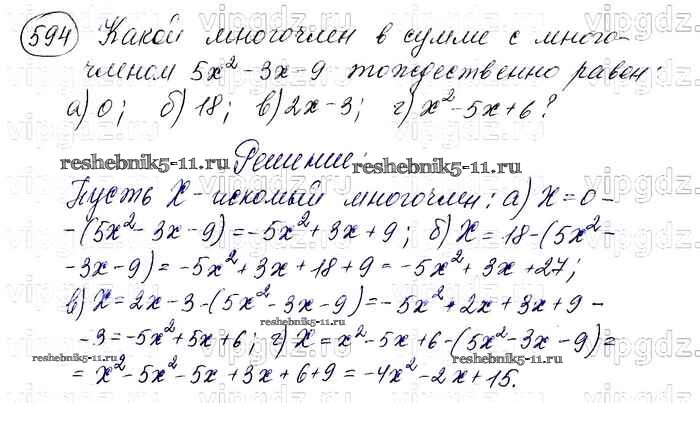 594 Какой многочлен в сумме с много-
членом 5x² - 3x - 9 тождественно равен:
а) 0; б) 18; в) 2x - 3; г) x² - 5x + 6?
reshebnik5-11.ru Решение: reshebnik5-11.ru
Пусть X - искомый многочлен: а) X = 0 -
- (5x² - 3x - 9) = -5x² + 3x + 9; б) X = 18 - (5x² -
- 3x - 9) = -5x² + 3x + 18 + 9 = -5x² + 3x + 27;
в) X = 2x - 3 - (5x² - 3x - 9) = -5x² + 2x + 3x + 9 -
reshebnik5-11.ru
- 3 = -5x² + 5x + 6; г) X = x² - 5x + 6 - (5x² - 3x - 9) =
reshebnik5-11.ru reshebnik5-11.ru
= x² - 5x² - 5x + 3x + 6 + 9 = -4x² - 2x + 15.